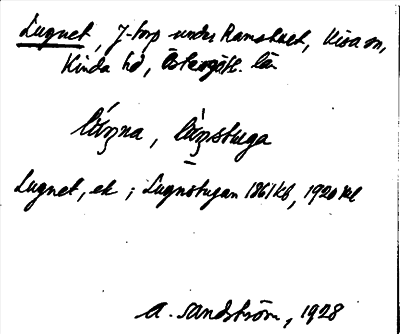 Lugnet, J-torp under Ramshult, Kisa sn,
Kinda hd, Östergötl. län
lúŋna, lùŋstuga
Lugnet, ek; Lugnstugan 1861 kb, 1920 kb
A. Sandström, 1928